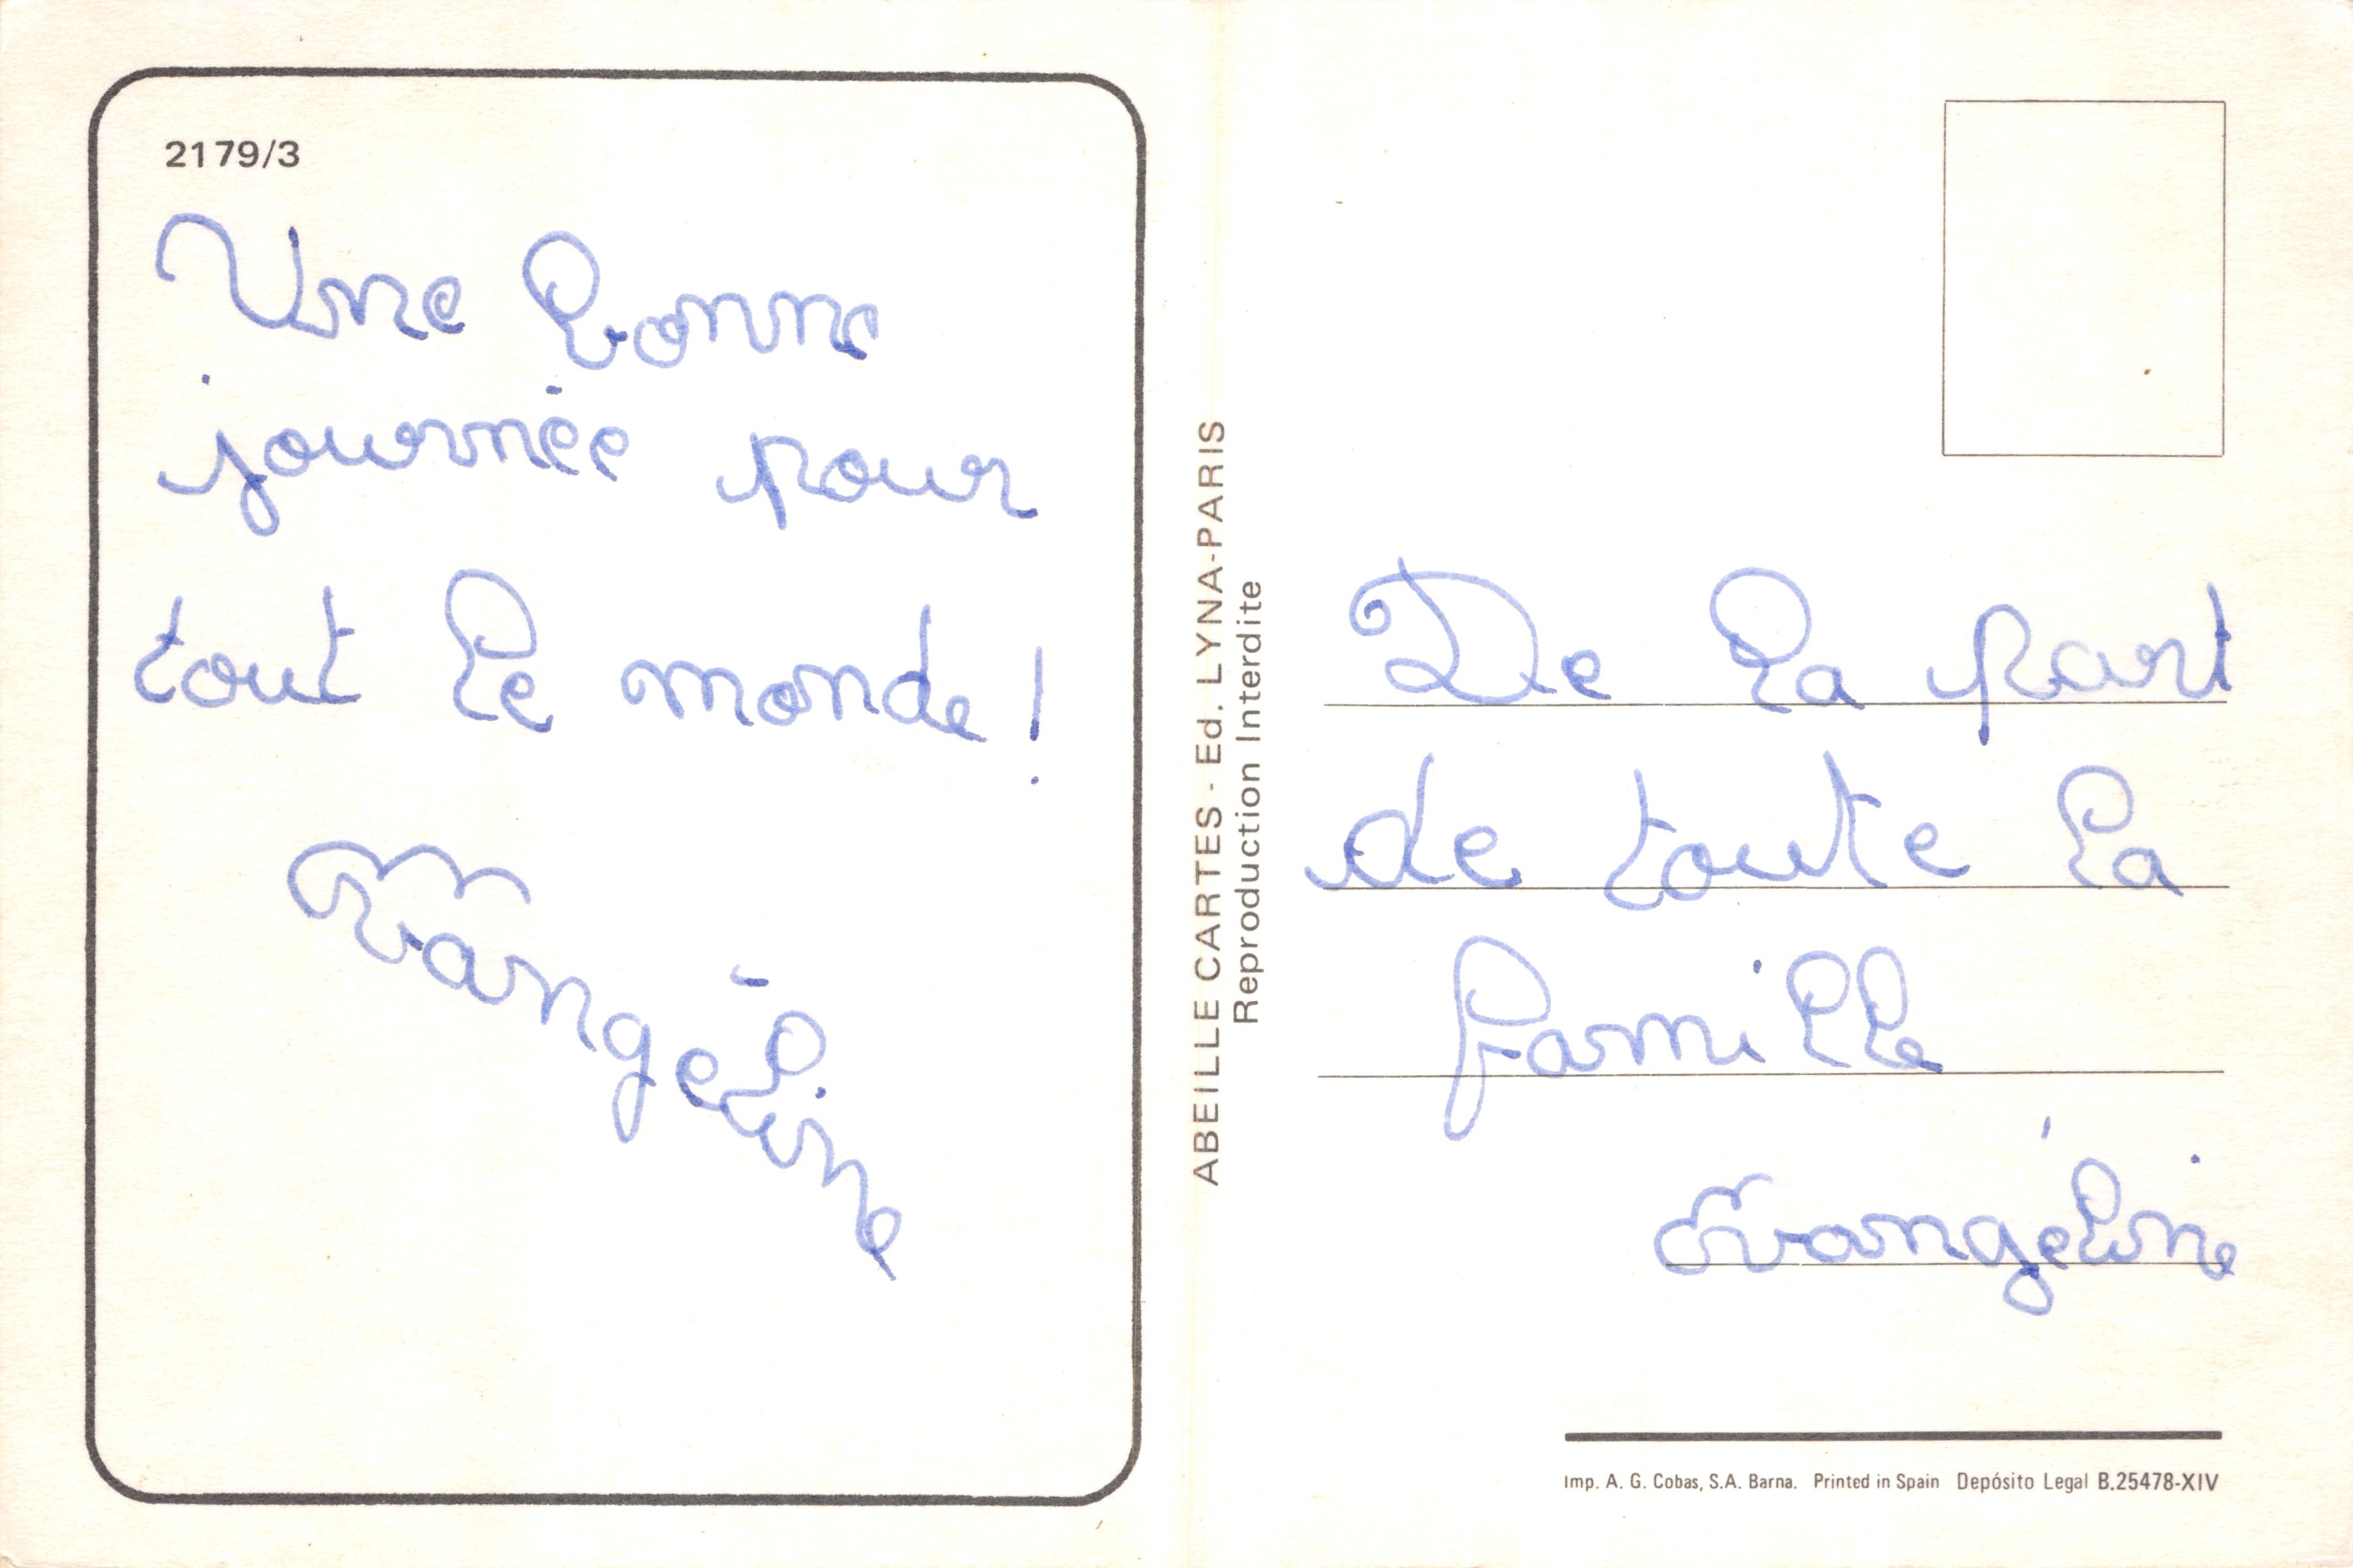 2179/3
Une bonne
journée pour
tout le monde !
Évangéline
ABEILLE CARTES - Ed. LYNA-PARIS
Reproduction Interdite
De la part
de toute la
famille
Évangéline
Imp. A. G. Cobas, S.A. Barna. Printed in Spain Depósito Legal B.25478-XIV